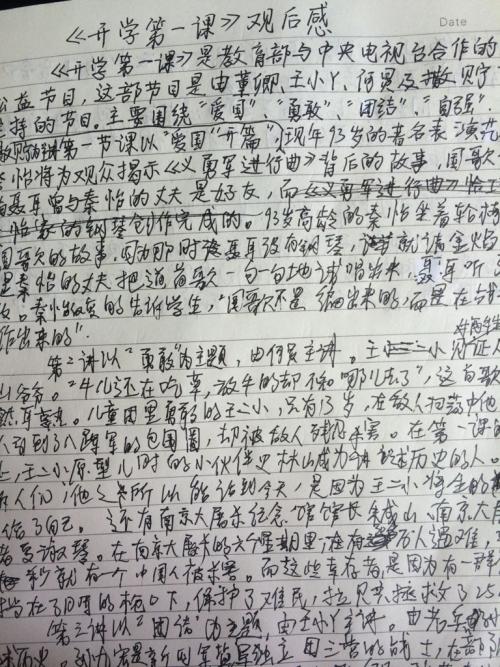 《开学第一课》观后感
Date
《开学第一课》是教育部与中央电视台合作的
公益节目,这部节目是由董卿、王小丫、何炅及撒贝宁
主持的节目。主要围绕“爱国”、“勇敢”、“团结”、“自强”
第一节课以“爱国”开篇,现年93岁的著名表演艺
秦怡将为观众揭示《义勇军进行曲》背后的故事,国歌
聂耳曾与秦怡的丈夫是好友,而《义勇军进行曲》
怡家的钢琴创作完成的。93岁高龄的秦怡坐着轮椅
国歌的故事,因为那时候聂耳没有钢琴,就请金焰
秦怡的丈夫把这首歌一句一句地试唱出来,聂耳听
秦怡认真的告诉学生,“国歌不是编出来的,而是在
作出来的”.
第二讲以“勇敢”为主题,由何炅主讲。王二小见证人
山爷爷。“牛儿还在吃草,放牛的却不知哪儿去了”,这首歌
熟耳熟。儿童团里勇敢的王二小,只有13岁,在敌人扫荡中他
人引到了八路军的包围圈,却被敌人残忍杀害。在第一课的
上,王二小原型儿时的小伙伴史林山成为讲述历史的人。
人们:他之所以能活到今天,是因为王二小将生的
给了自己。还有南京大屠杀纪念馆馆长 成山、南京大屠
者夏淑琴。在南京大屠杀的六个星期里,有 万人遇难,
秒就有一个中国人被杀害。而这些幸存者是因为有一群
挡在了日军的枪口下,保护了难民,拉贝等拯救了25
第三讲以“团结”为主题,由王小丫主讲。由老兵